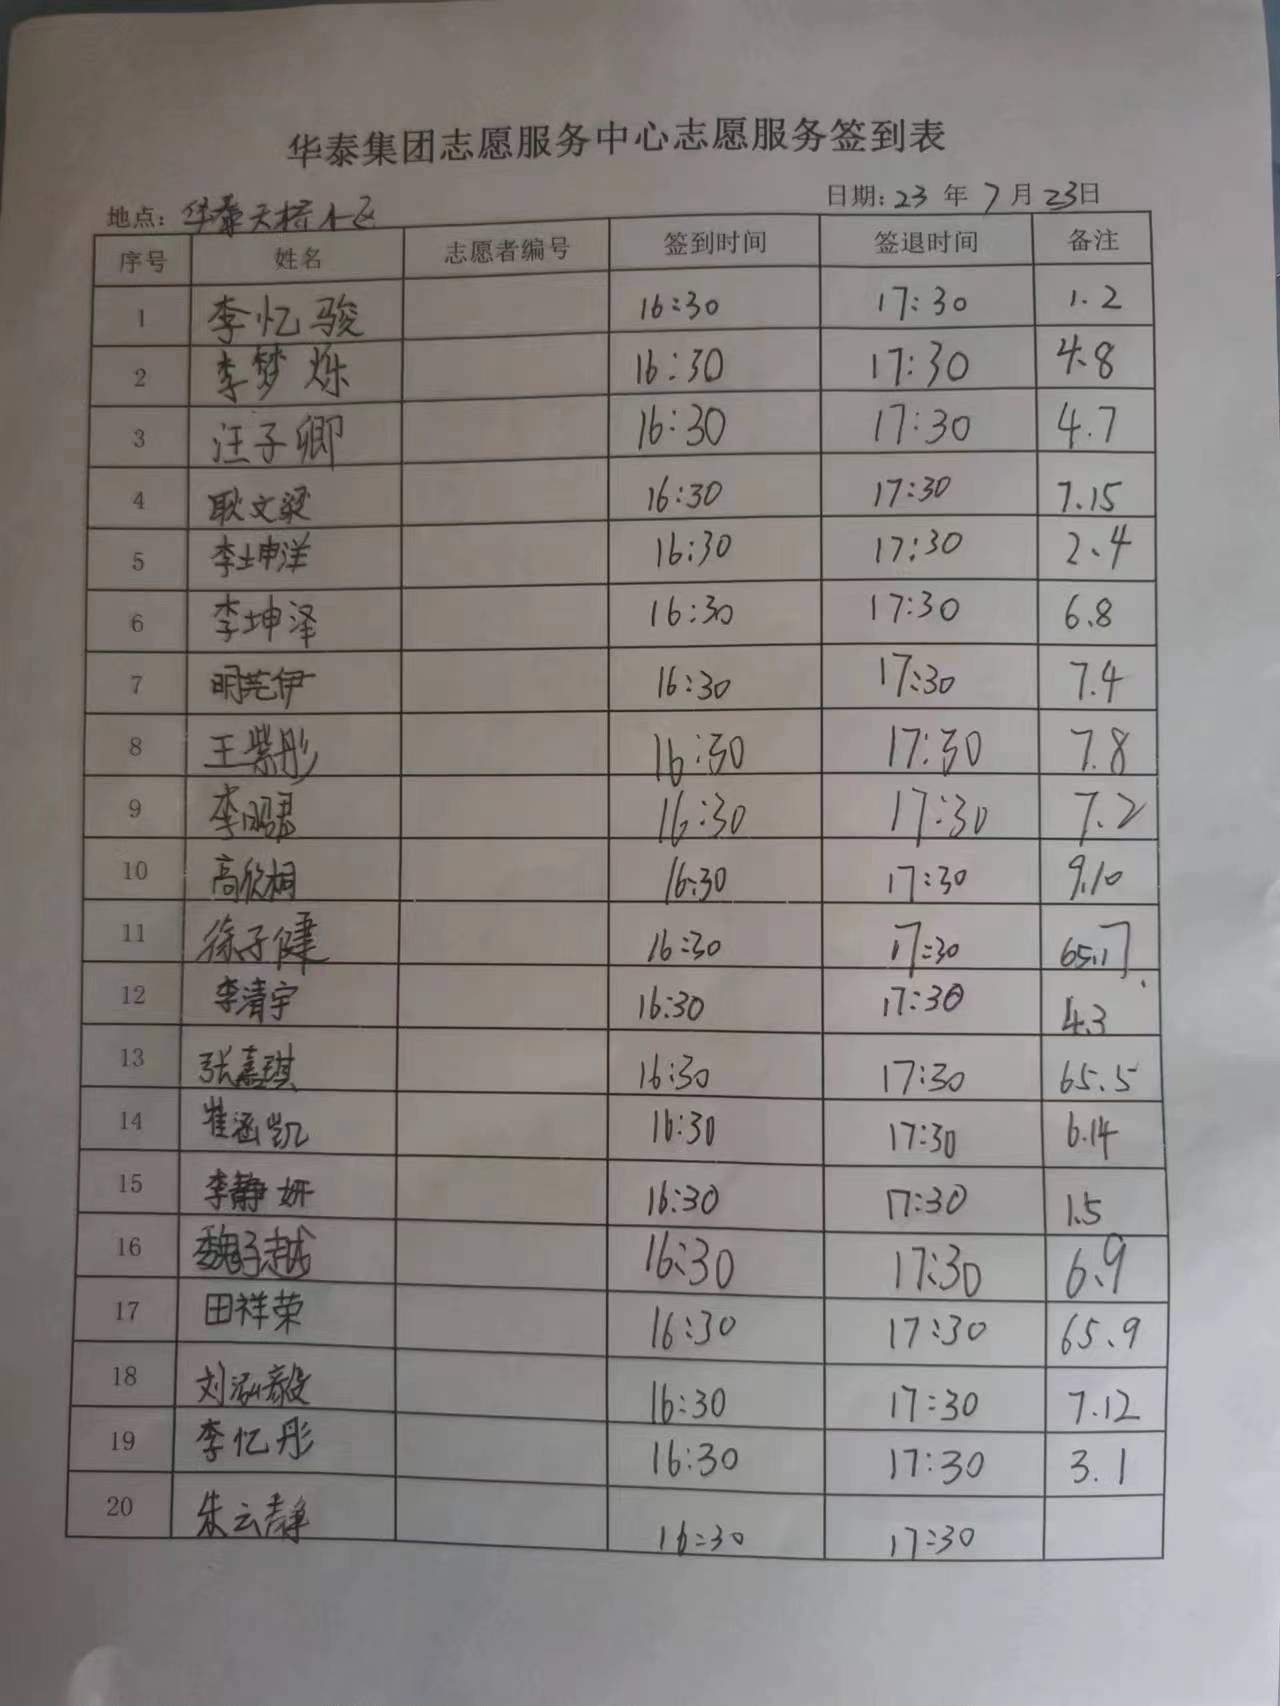 华泰集团志愿服务中心志愿服务签到表
地点：华泰天桥小区 日期：23 年 7 月 23日
序号 姓名 志愿者编号 签到时间 签退时间 备注
1 李忆骏 16:30 17:30 1.2
2 李梦烁 16:30 17:30 4.8
3 汪子卿 16:30 17:30 4.7
4 耿文梁 16:30 17:30 7.15
5 李坤洋 16:30 17:30 2.4
6 李坤泽 16:30 17:30 6.8
7 明芫伊 16:30 17:30 7.4
8 王紫彤 16:30 17:30 7.8
9 李昭君 16:30 17:30 7.2
10 高欣桐 16:30 17:30 9.10
11 徐子健 16:30 17:30 65.17
12 李清宇 16:30 17:30 4.3
13 张嘉琪 16:30 17:30 65.5
14 崔涵凯 16:30 17:30 6.14
15 李静妍 16:30 17:30 1.5
16 魏子越 16:30 17:30 6.9
17 田祥荣 16:30 17:30 65.9
18 刘泓毅 16:30 17:30 7.12
19 李忆彤 16:30 17:30 3.1
20 朱云静 16:30 17:30